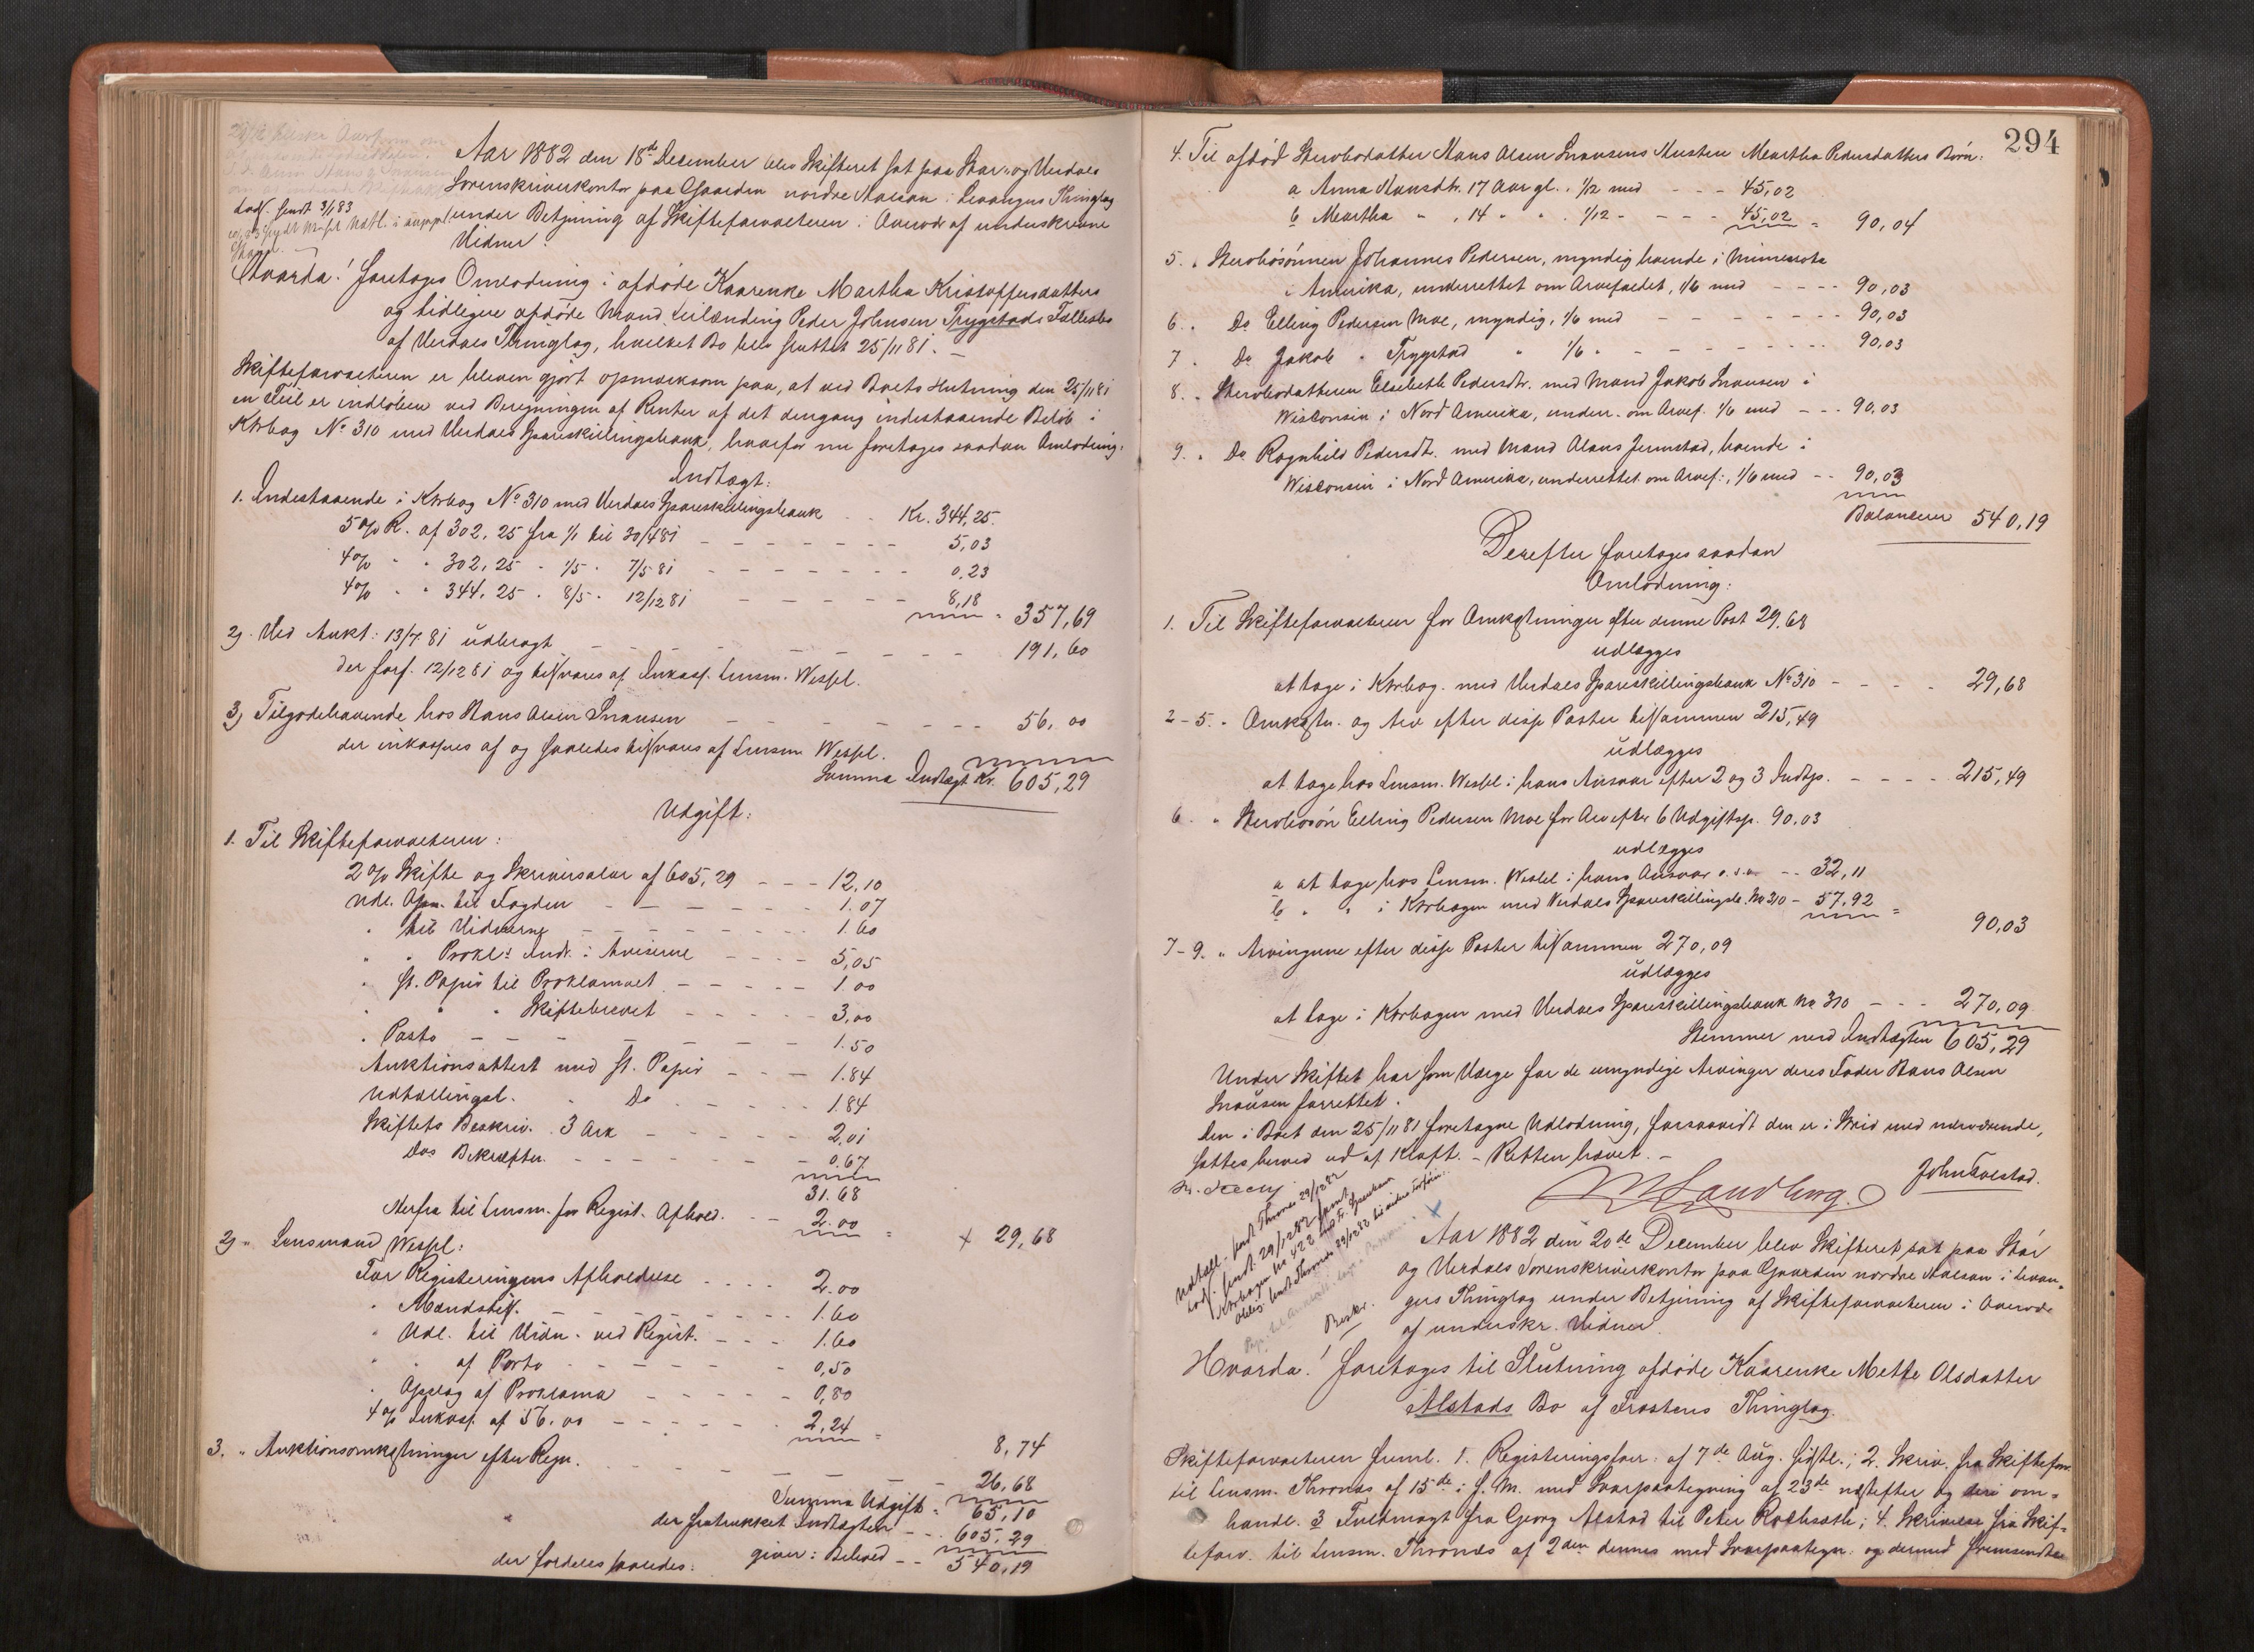 Aar 1882 den 18de December blev Skifteret sat paa Stør- og Verdals
Sorenskriverkontor paa Gaarden nordre Malsaa i Levangers Thinglag
under Betjening af Skifteforvalteren i Overvær af underskrevne
Vidner.
Lodf. sendt 3/1 83
Hvorda! foretages Omlodning i afdøde Kaarenke Martha Kristoffersdatters
og tidligere afdøde Mand Leilænding Peder Johnsen Trygstads Fællesbo
af Verdals Thinglag, hvilket Bo blev sluttet 25/11 81. –
Skifteforvalteren er bleven gjort opmærksom paa, at ved Boets Slutning den 25/11 81
en Feil er indløben ved Beregningen af Renter af det dengang indestaaende Beløb i
Ktrbog No 310 med Verdals Spareskillingsbank, hvorfor nu foretages saadan Omlodning:
Indtægt:
1. Indestaaende i Ktrbog No 310 med Verdals Spareskillingsbank - - Kr. 344,25.
5 % R. af 302,25 fra 1/1 til 30/4 81 - - - - - - 5,03
4% " " 302,25 " 1/5 " 7/5 81 - - - - - - 0,23
4% " " 344,25 " 8/5 " 12/12 81 - - - - - 8,18 = 357,69
2) Ved Aukt: 13/7 81 udbragt - - - - - - - - 191,60
der forf. 12/12 81 og tilsvares af Inkass. Lensm. Wessel.
3) Tilgodehavende hos Hans Olsen Snausen - - - - - - 56,00
der inkasseres af og saaledes tilsvares af Lensm Wessel.
Summa Indtægt Kr. 605,29
Udgift:
1. Til Skifteforvalteren:
2 % Skifte og Skriversalær af 605,29 - - - 12,10
Udl. Opm. til Fogden - - - - - 1.07
" til Vidnerne - - - - - 1.60
" " Prokl: Indr. i Aviserne - - - - 5,05
" st. Papir til Proklamaet - - - - - 1.00
" " " Skiftebrevet - - - - - 3,00
" Porto - - - - - - - - 1.50
Auktionsattest med st. Papir - - - 1.84
Udtællingsl. " Do - - - - 1.84
Skiftets Beskriv. 3 Ark - - - - - 2,01
Dos Bekræftn. - - - - - - - - 0.67
31.68
Herfra til Lensm. for Regist. Afhold. - - 2.00 = + 29,68
2) " Lensmand Wessel:
For Registeringens Afholdelse - - - - 2.00
" Mændstilf. - - - - - - - - 1.60
" Udl. til Vidn. ved Regist. - - - 1.60
" " af Porto - - - - - - - 0,50
" Opslag af Proklama - - - - - 0,80
4% Inkass. af 56.00 - - - - - - 2,24 = 8,74
3. " Auktionsomkostninger efter Regn. - - - - - - - 26,68
Summa Udgift = 65,10
der fratrukket Indtægten - - . 605,29
giver: Behold - - 540,19
der fordeles saaledes:
294
4. Til afdød Stervbodatter Hans Olsen Snausens Hustru Martha Pedersdatters Børn:
a Anna Hansdtr. 17 Aar gl. 1/12 med - - - 45,02
b Martha " , 14 " " . 1/12 - - - - 45,02 = 90,04
5. " Stervbosønnen Johannes Pedersen, myndig boende i Minnesota
i Amerika, underrettet om Arvefaldet, 1/6 med - - - - 90,03
6. " Do Elling Pedersen Moe, myndig, 1/6 med - - - - - - - - 90,03
7 " Do Jakob " Trygstad " 1/6 " - - - - - - - - 90,03
8. " Stervbodatteren Elsebeth Pedersdtr. med Mand Jakob Snausen i
Wisconsin i Nord Amerika, underr. om Arvef. 1/6 med - - - 90,03
9. " Do Ragnhild Pedersdtr. med Mand Olaus Jermstad, boende i
Wisconsin i Nord Amerika, underrettet om Arvef:, 1/6 med - - 90,03
Balancerer 540,19
Derefter foretages saadan
Omlodning:
1. Til Skifteforvalteren for Omkostninger efter denne Post 29,68
udlægges
at tage i Ktrbog. med Verdals Spareskillingsbank No 310 - - - - 29,68
2-5. " Omkostn. og Arv efter disse Poster tilsammen 215,49
udlægges
at tage hos Lensm. Wessel i hans Ansvar efter 2 og 3 Indtp. - - - - 215,49
6. " Stervbosøn Elling Pedersen Moe for Arv efter 6 Udgiftsp. 90.03
udlægges
a at tage hos Lensm. Wessel i hans Ansvar o.s.v. - - 32,11
b " " i Ktrbogen med Verdals Spareskillingsb. No 310 - 57,92 = 90,03
7-9. " Arvingerne efter disse Poster tilsammen 270,09
udlægges
at tage i Ktrbogen med Verdals Spareskillingsbank No 310 - - - 270,09
Stemmer med Indtægten 605,29
Under Skiftet har som Værge for de umyndige Arvinger deres Fader Hans Olsen
Snausen forrettet.
Den i Boet den 25/11 81 foretagne Udlodning, forsaavidt den er i Strid med nærværende,
sættes herved ud af Kraft. – Retten hævet. –
M Landberg. John Tvestad.
Udtæll. sendt Thrones 29/12 82
Lodf. sendt 29/12 82 samt
Ktrbogen No 422
Beskr.
Aar 1882 den 20de December blev Skifteret sat paa Stør
og Verdals Sorenskriverkontor paa Gaarden nordre Malsaa i Levan-
gers Thinglag under Betjening af Skifteforvalteren i Overvær
af underskr. Vidner.
Hvorda! foretages til Slutning afdøde Kaarenke Mette Olsdatter
Alstads Bo af Frostens Thinglag.
Skifteforvalteren freml. 1. Registeringsforr. af 7de Aug. sidstl.; 2. Skriv. fra Skifteforv.
til Lensm. Thrones af 15de i s. M. med Svarpaategning af 23de næstefter og deri om-
handl. 3 Fuldmagt fra Georg Alstad til Peter Rothsæth; 4. Skrivelse fra Skif-
teforv. til Lensm. Thrones af 2den dennes med Svarpaategn. og dermed fremsendte